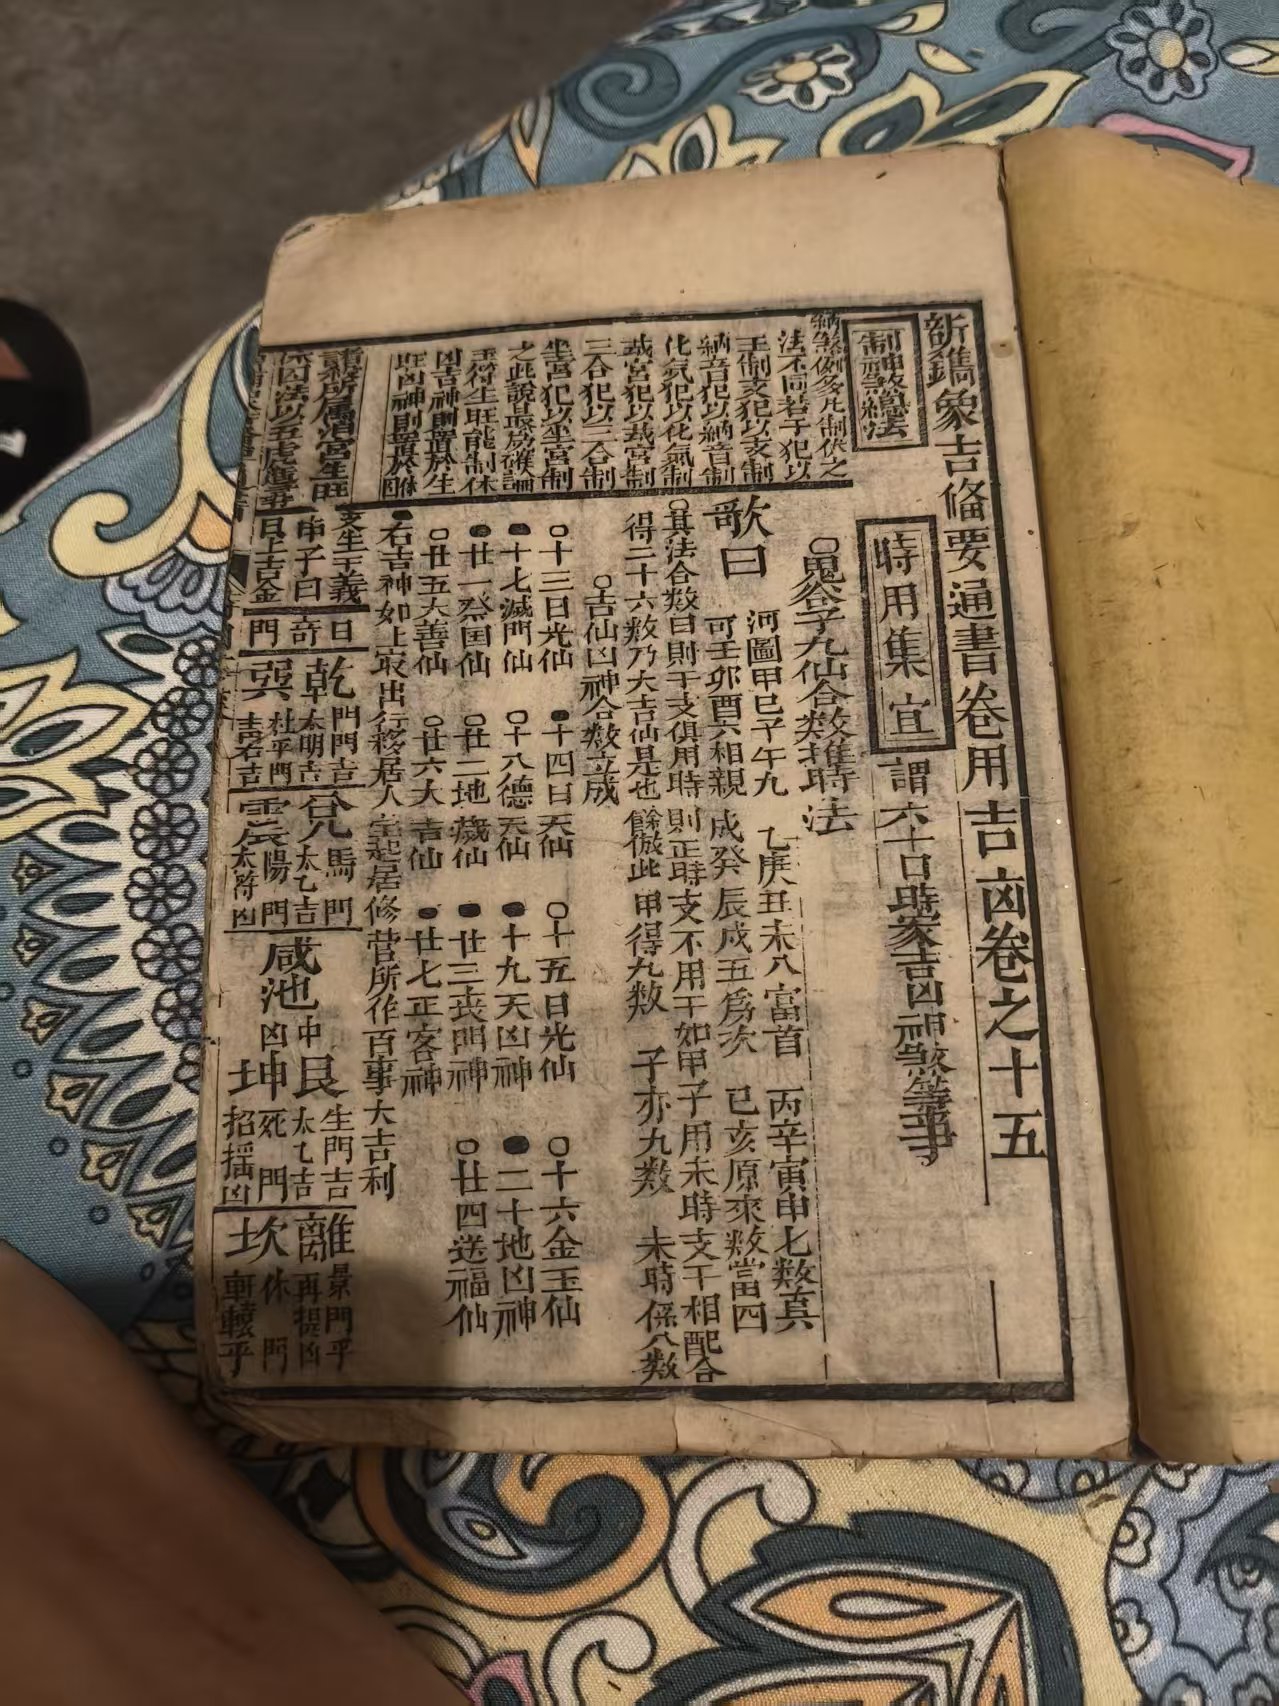 新鐫象吉備要通書卷用吉凶卷之十五
制神煞總法
時用集宜
謂六十日時家吉凶神煞等事
納煞例多凡制伏之
法不同若干犯以
王制支犯以支制
納音犯以納音制
化氣犯以化氣制
㦲宮犯以㦲宮制
三合犯以三合制
坐宮犯以坐宮制
之此說最為確論
凶吉神則置於生
旺凶神則置於休囚
○鬼谷子九仙合數推時法
歌曰
河圖甲巳子午九 乙庚丑未八富首 丙辛寅申七數真
可壬卯酉六相親 戍癸辰戍五為次 巳亥原來數當四
○其法合數日則干支俱用時則正時支不用干如甲子用未時支干相配合
得二十六數乃大吉仙是也餘倣此 甲得九數 子亦九數 未時係八數
○吉仙凶神合數立成
○十三日光仙 ●十四日天仙 ○十五日光仙 ○十六金玉仙
●十七滅門仙 ○十八德天仙 ●十九天凶神 ●二十地凶神
●廿一祭国仙 ○廿二地藏仙 ●廿三丧門神 ○廿四送福仙
○廿五大善仙 ○廿六大吉仙 ●廿七正客神
●右吉神如上最出行移居人宅起居修營所作百事大吉利
支生干義
申子曰
日上吉金
日
奇
門
乾門門吉
太明吉
巽杜平門
青右吉
兌馬門
太乙吉
陽門
太符凶
咸池中凶
艮生門吉
太乙吉
坤死門
招搖凶
離景門平
再提凶
坎休門
軒轅平